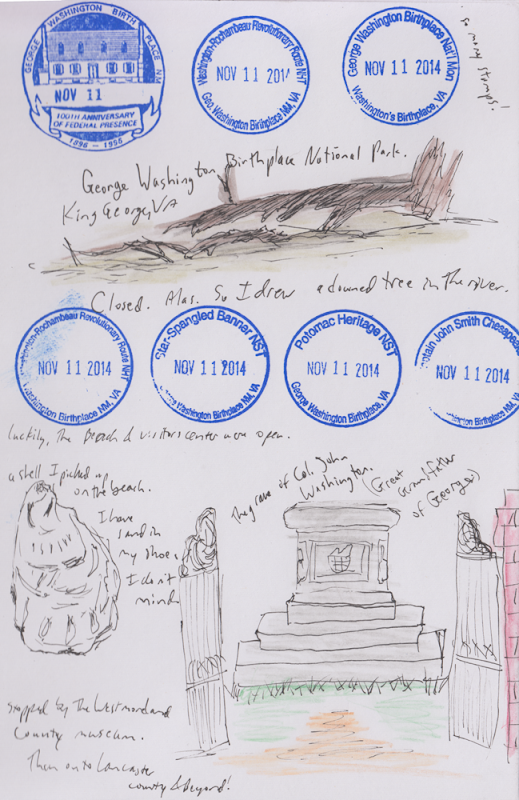 GEORGE WASHINGTON BIRTH PLACE NM
NOV 11
100TH ANNIVERSARY
OF FEDERAL PRESENCE
1896 - 1996
Washington-Rochambeau Revolutionary Route NHT
NOV 11 201
Geo. Washington Birthplace NM, VA
George Washington Birthplace Nat'l Mon
NOV 11 2014
Washington's Birthplace, VA
so many stamps!
George Washington Birthplace National Park.
King George, VA
Closed. Alas. So I drew a downed tree in the river.
Rochambeau Revolutionary Route NHT
NOV 11 2014
Washington Birthplace NM, VA
Star-Spangled Banner NST
NOV 11 2014
Washington Birthplace NM, VA
Potomac Heritage NST
NOV 11 2014
George Washington Birthplace NM, VA
ptain John Smith Chesapea
NOV 11 2014
Washington Birthplace NM, VA
luckily, the Beach & visitors center were open.
a shell I picked up
on the beach.
I have
sand in
my shoe.
I don't
mind
The grave of Col. John
Washington.
(Great
Grandfather
of George)
stopped by the Westmoreland
County museum.
Then onto Lancaster
county & beyond!